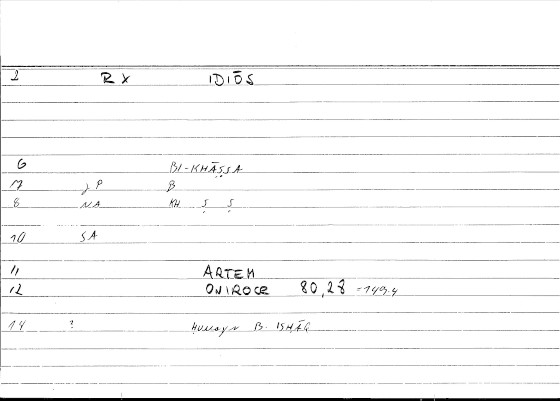 2 RX IDIŌS
6 BI-KHĀṢṢA
7 JP B
8 NA KH Ṣ Ṣ
10 SA
11 ARTEM
12 ONIROCR 80,28 = 149.4
14 ? ḤUNAYN B. ISḤĀQ